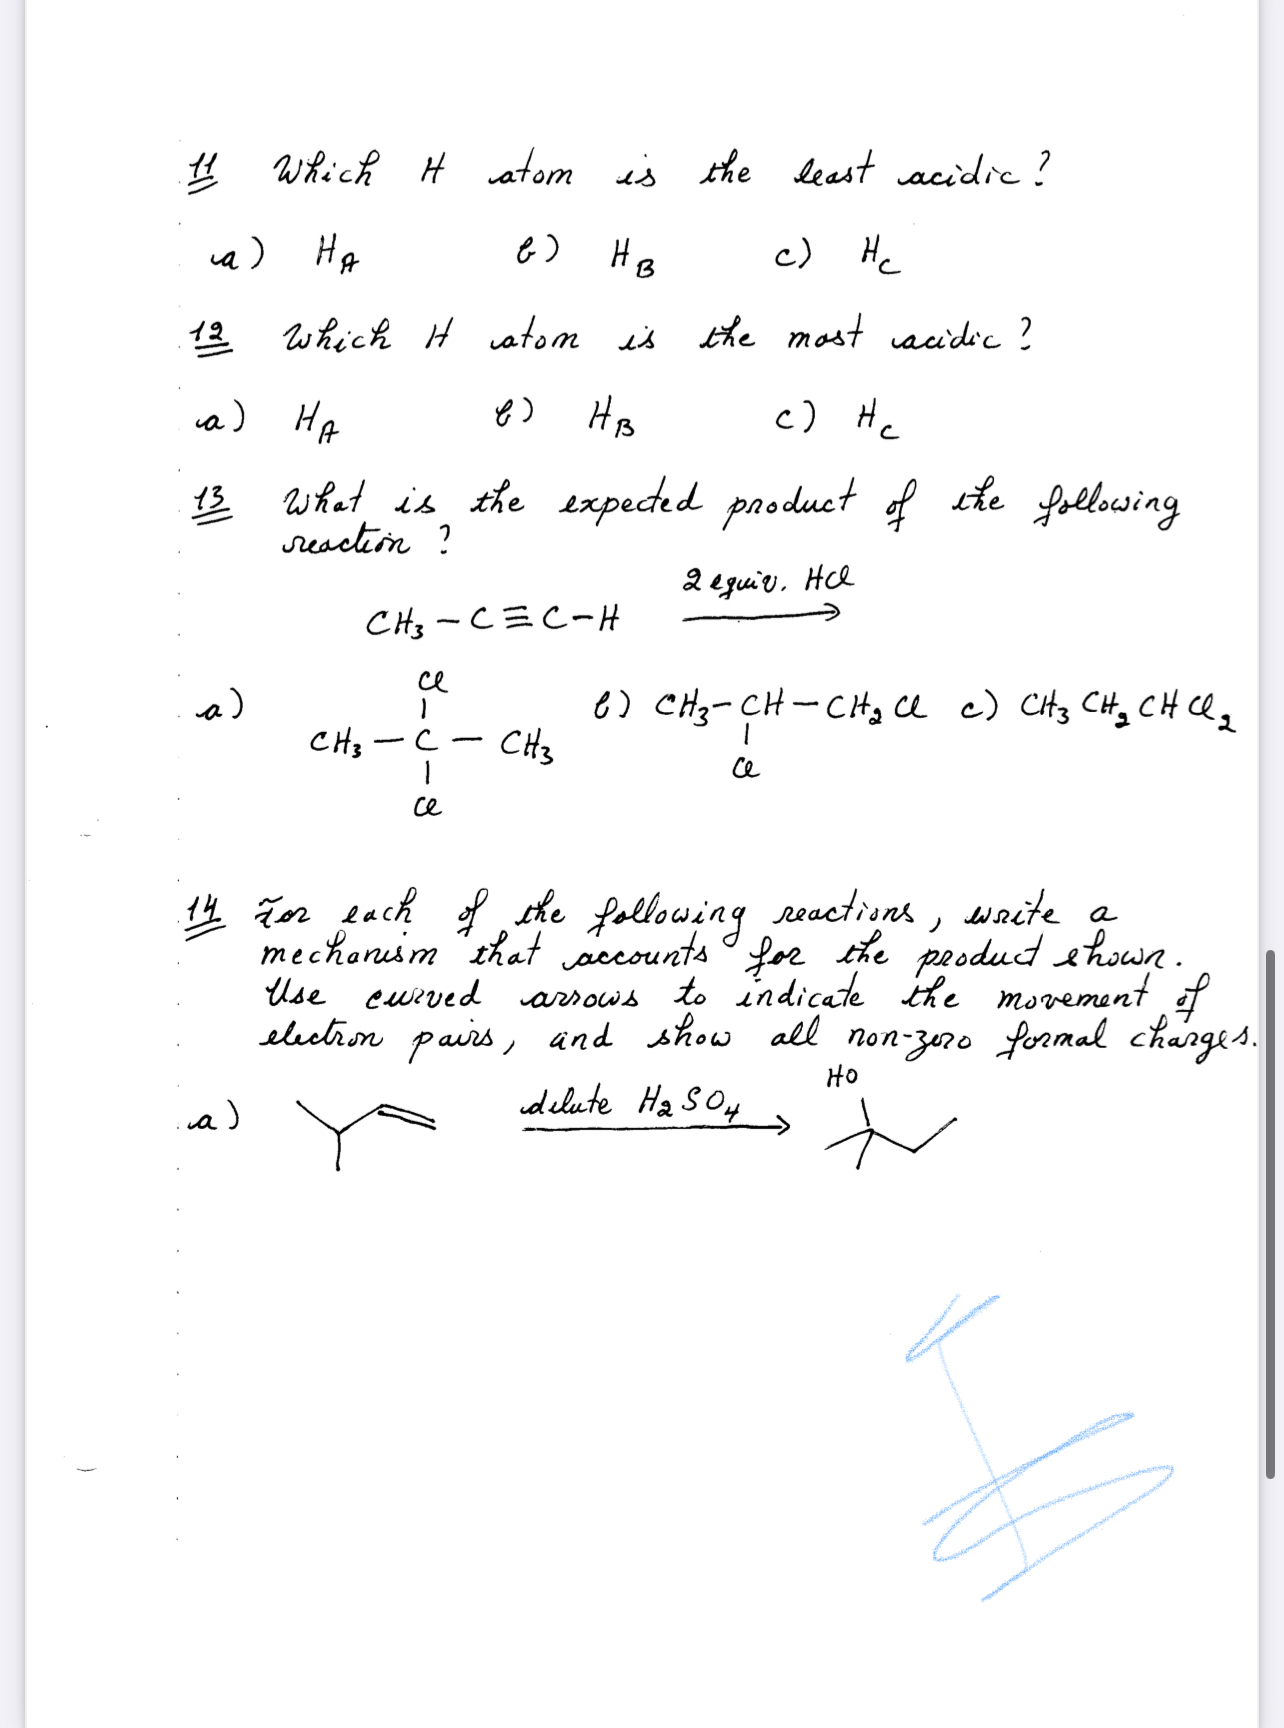 11 Which H atom is the least acidic?
a) H_A b) H_B c) H_C
12 Which H atom is the most acidic?
a) H_A b) H_B c) H_C
13 What is the expected product of the following
reaction?
2 equiv. HCl
CH₃-C≡C-H
Cl
a) b) CH₃-CH-CH₂Cl c) CH₃CH₂CHCl₂
CH₃-C-CH₃
Cl
Cl
14 For each of the following reactions, write a
mechanism that accounts for the product shown.
Use curved arrows to indicate the movement of
electron pairs, and show all non-zero formal charges.
HO
a) dilute H₂SO₄